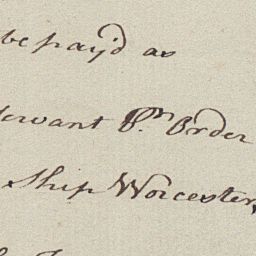 be pay'd as
servant P.r Order
Ship Worcester,